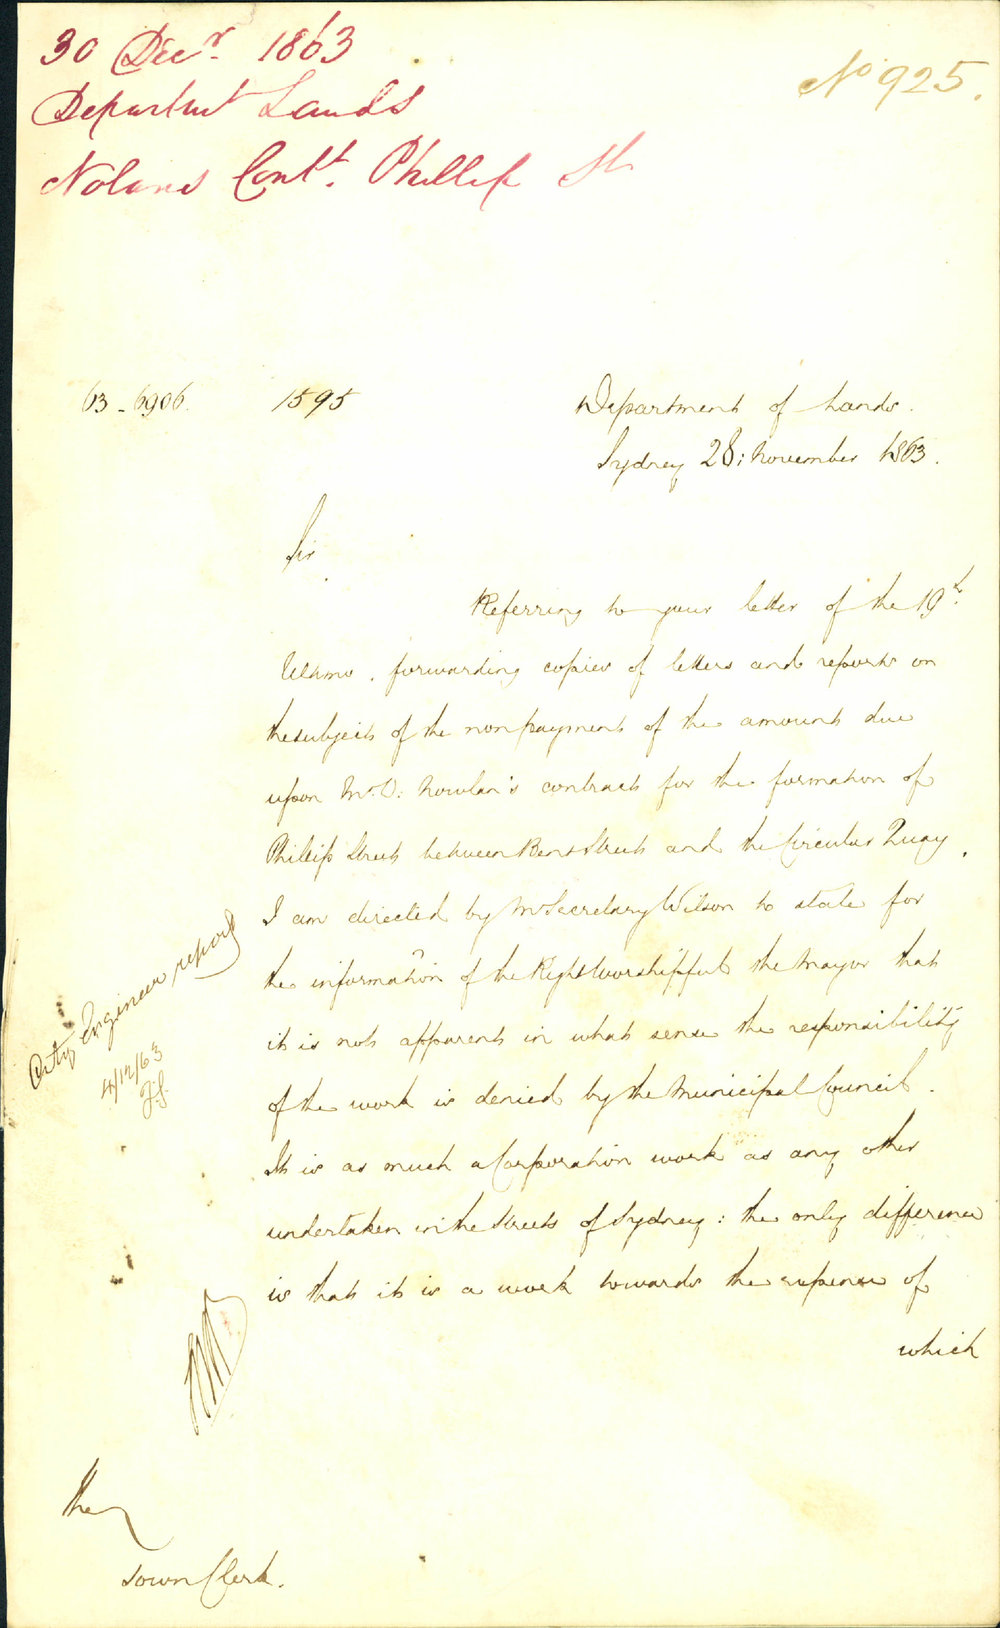 30 Decr. 1863
Departmt Lands
Nolans Contt. Phillip St
No 925.
63-6906. 1595
Department of Lands.
Sydney 28: November 1863.
Sir
Referring to your letter of the 19th.
Ultimo, forwarding copies of letters and reports on
the subject of the non payment of the amount due
upon Mr. D. Nowlan's contract for the formation of
Phillip Street between Bent Street and the Circular Quay,
I am directed by Mr Secretary Wilson to state for
the information of the Right Worshipful the Mayor that
it is not apparent in what sense the responsibility
of the work is denied by the Municipal Council.
It is as much a Corporation work as any other
undertaken in the Streets of Sydney: the only difference
is that it is a work towards the expense of
which
City Engineer report
4/12/63
The
Town Clerk.